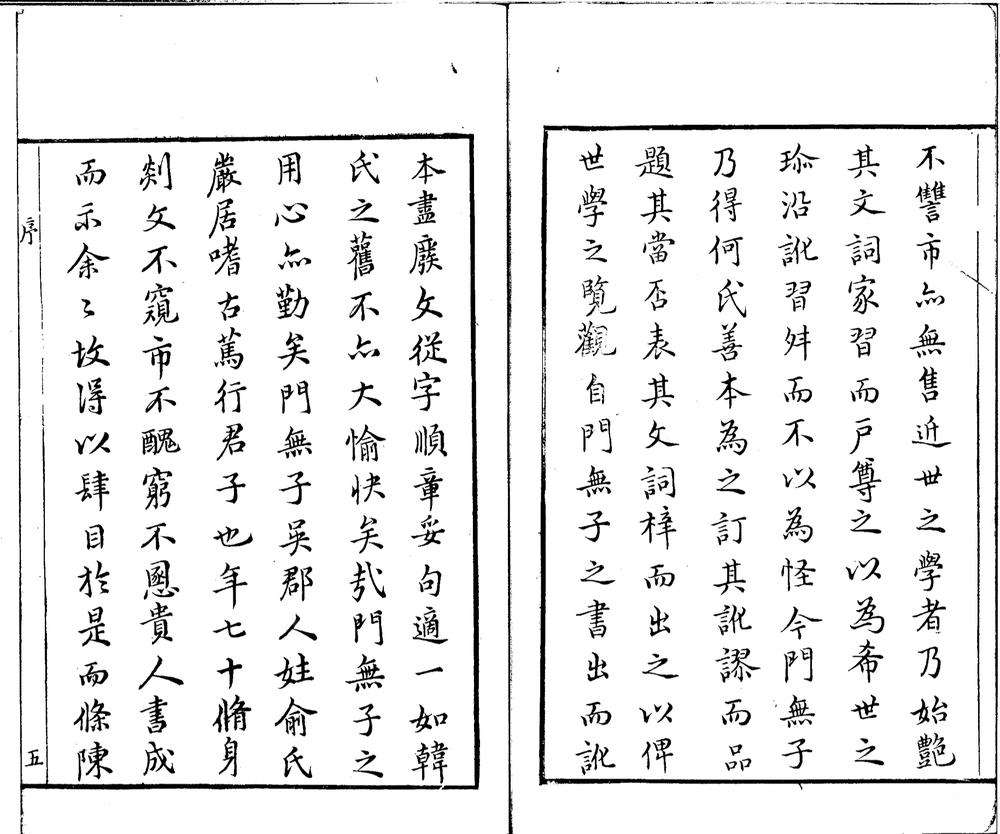 不讐市亦無售近世之學者乃始艷
其文詞家習而戶尊之以為希世之
珎沿訛習舛而不以為怪今門無子
乃得何氏善本為之訂其訛謬而品
題其當否表其文詞梓而出之以俾
世學之覽觀自門無子之書出而訛
本盡廢文從字順章妥句適一如韓
氏之舊不亦大愉快矣哉門無子之
用心亦勤矣門無子吳郡人姓俞氏
嚴居嗜古篤行君子也年七十脩身
剡文不窺市不醜窮不慁貴人書成
而示余〻故得以肆目於是而條陳
序
五